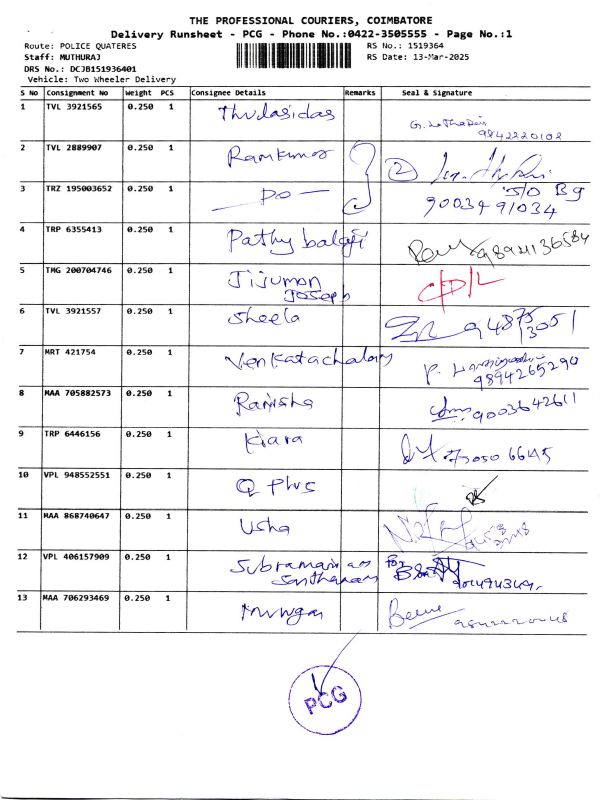 THE PROFESSIONAL COURIERS, COIMBATORE
Delivery Runsheet - PCG - Phone No.:0422-3505555 - Page No.:1
Route: POLICE QUATERES RS No.: 1519364
Staff: MUTHURAJ RS Date: 13-Mar-2025
DRS No.: DCJB151936401
Vehicle: Two Wheeler Delivery
S No Consignment No Weight PCS Consignee Details Remarks Seal & Signature
1 TVL 3921565 0.250 1 Thulasidas
9842220102
2 TVL 2889907 0.250 1 Ramkumar 2
3 TRZ 195003652 0.250 1 — DO — S/O Bg
90034 91034
4 TRP 6355413 0.250 1 Pathy balaji 9894136584
5 TMG 200704746 0.250 1 Jijumon
Joseph
6 TVL 3921557 0.250 1 Sheela 94875
13051
7 MRT 421754 0.250 1 Venkatachalam
9894265290
8 MAA 705882573 0.250 1 Ramisha 9003642611
9 TRP 6446156 0.250 1 Kiara 73050 66145
10 VPL 948552551 0.250 1 Q Plus
11 MAA 868740647 0.250 1 Usha
12 VPL 406157909 0.250 1 Subramanian for
Santhanam
13 MAA 706293469 0.250 1 Murugan
PCG